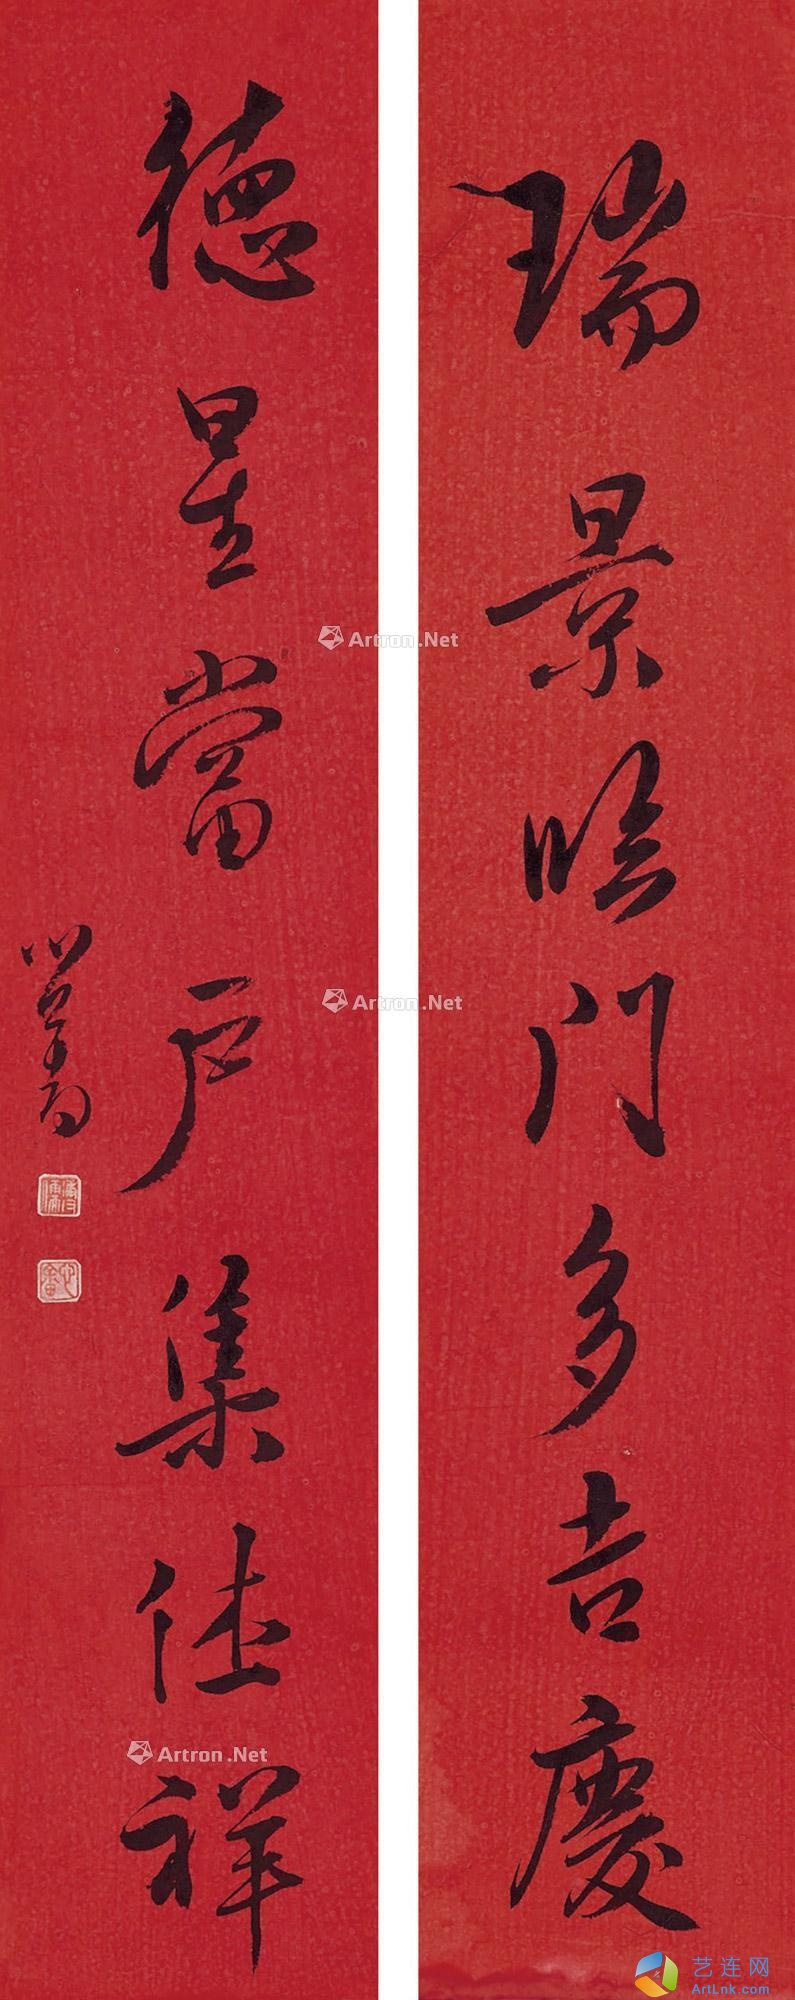 瑞景临门多吉慶
德星當户集佳祥
心畬
溥儒
心畬
Artron.Net
Artron.Net
Artron.Net
艺连网
ArtLnk.com